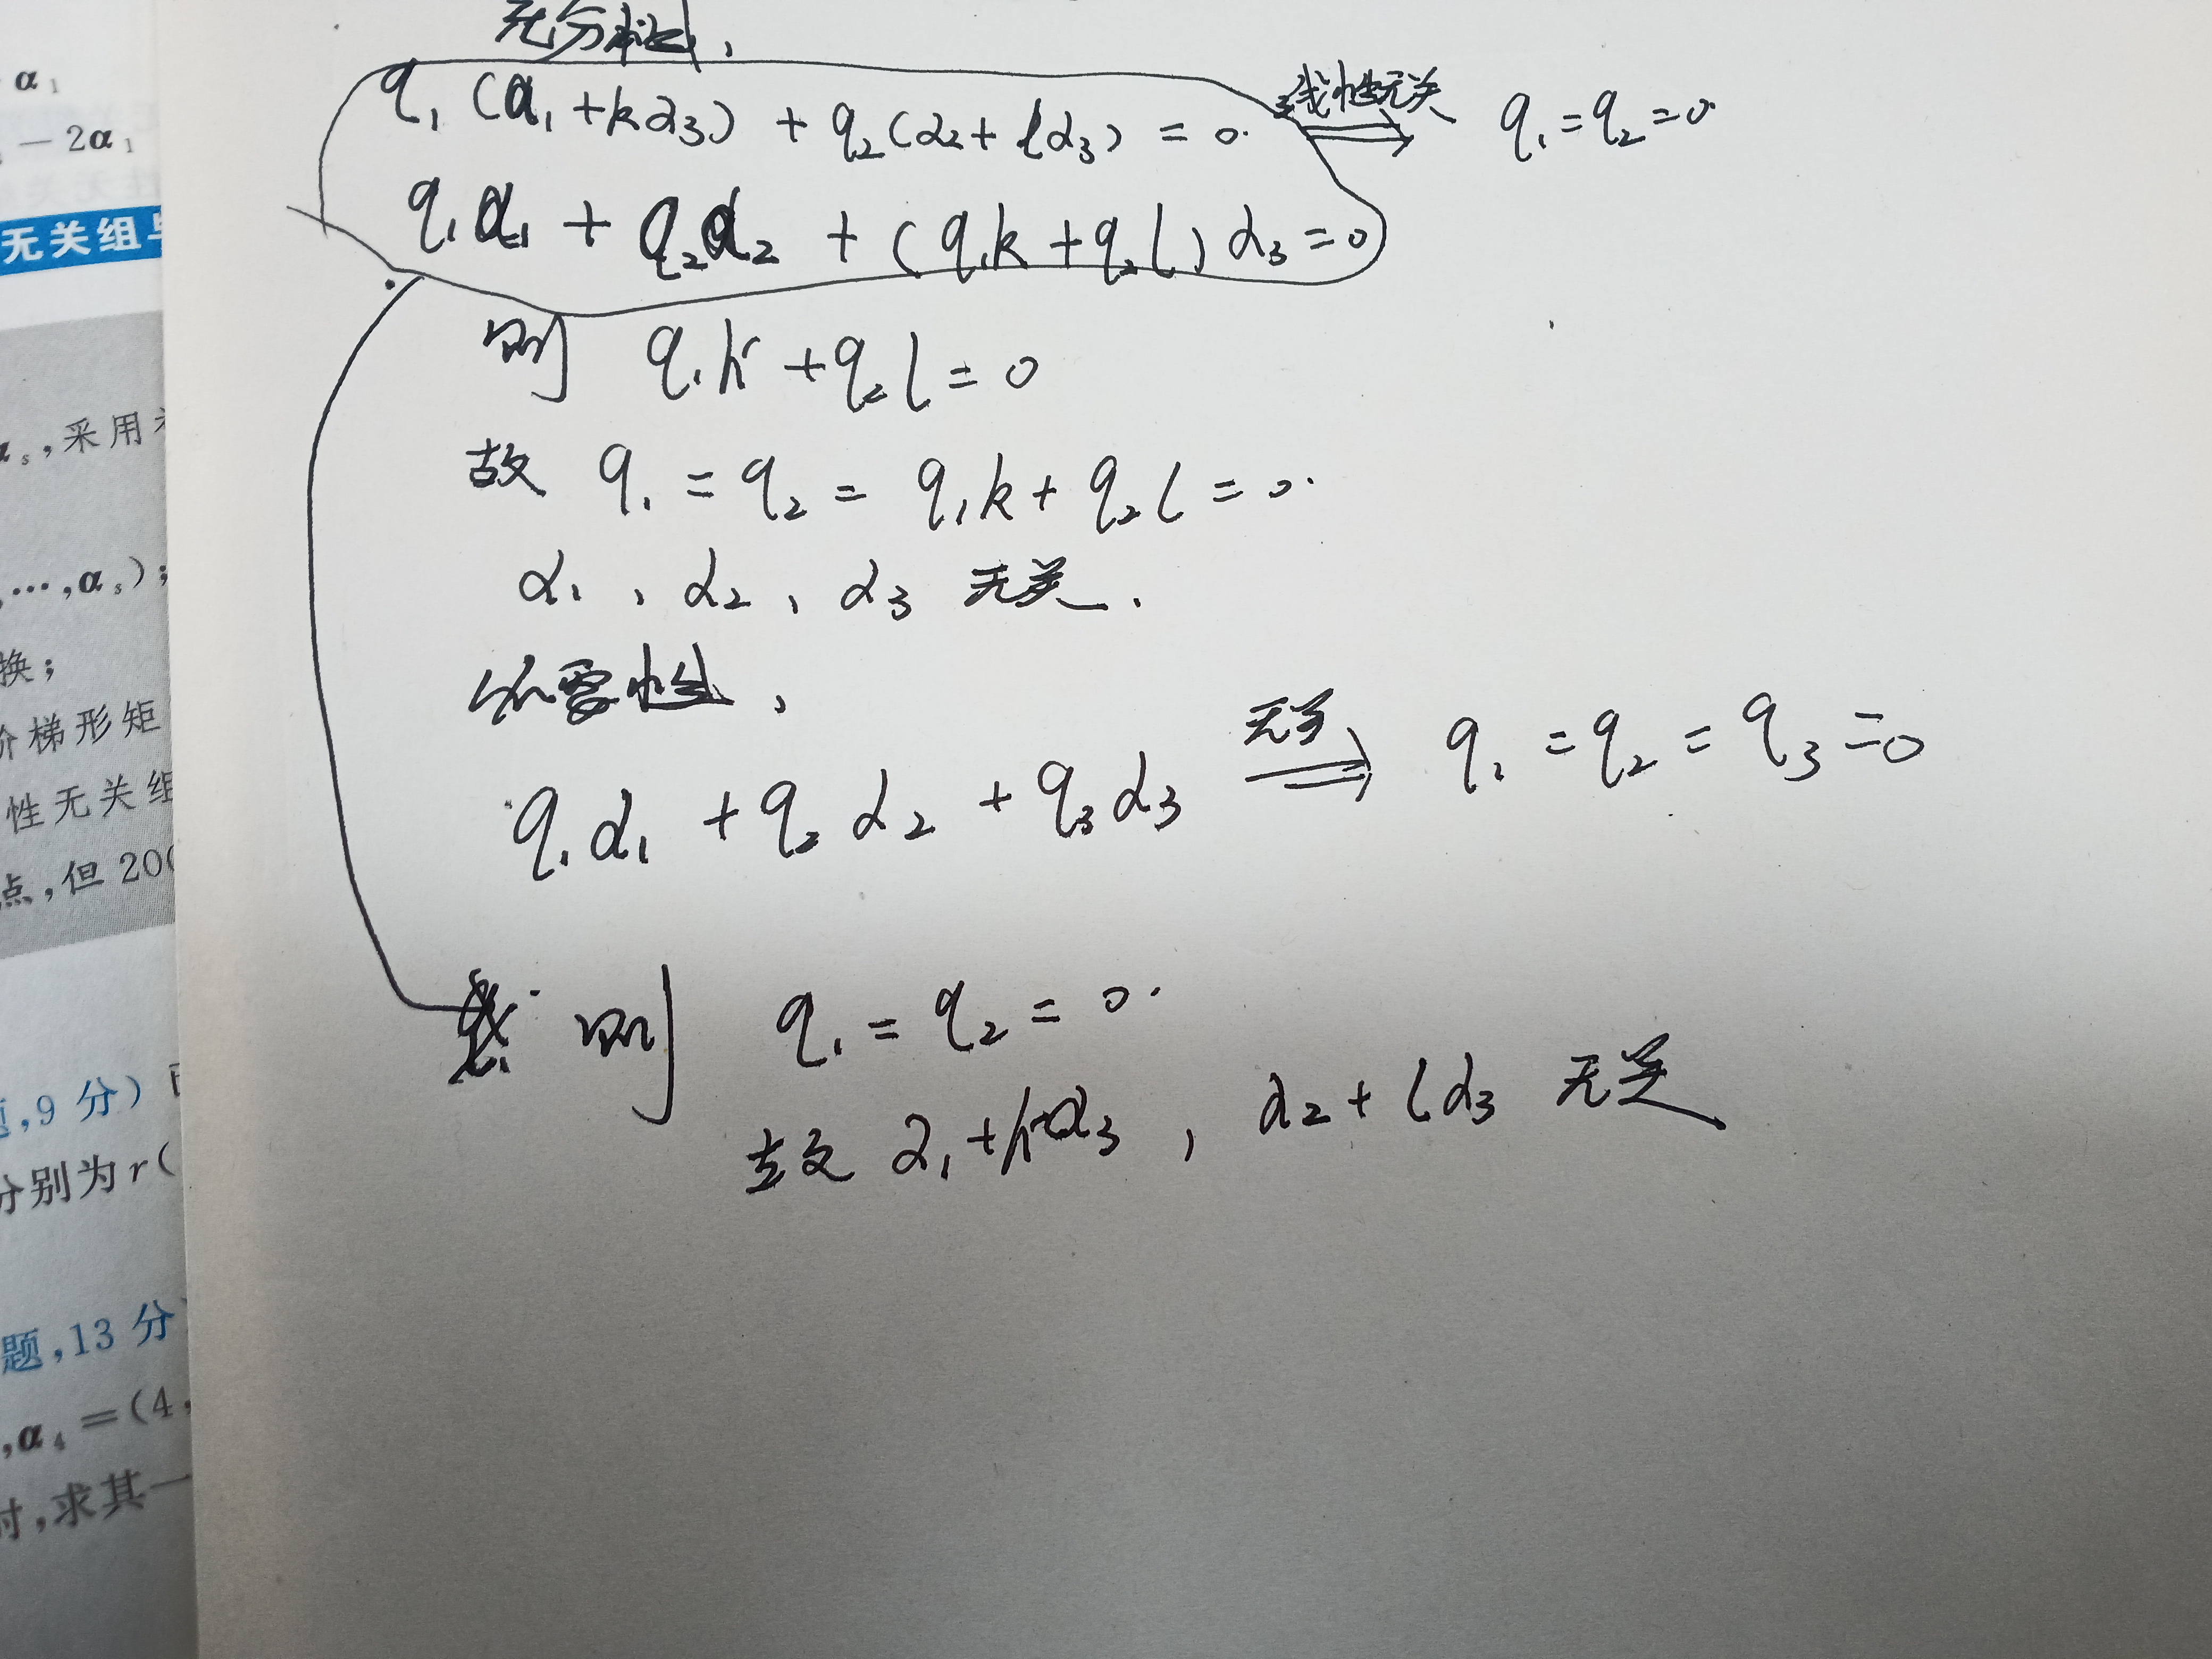 α₁
-2α₁
无关组
αₛ,采用
,…,αₛ);
换;
阶梯形矩
性无关组
点,但200
题,9分)
分别为r(
题,13分)
,α₄=(4,
时,求其一
充分性,
q₁(α₁+kα₃)+q₂(α₂+lα₃)=0. 线性无关 ⟹ q₁=q₂=0
q₁α₁+q₂α₂+(q₁k+q₂l)α₃=0
则 q₁k+q₂l=0
故 q₁=q₂=q₁k+q₂l=0.
α₁、α₂、α₃ 无关.
必要性,
q₁α₁+q₂α₂+q₃α₃ 无关 ⟹ q₁=q₂=q₃=0
则 q₁=q₂=0.
故 α₁+kα₃,α₂+lα₃ 无关